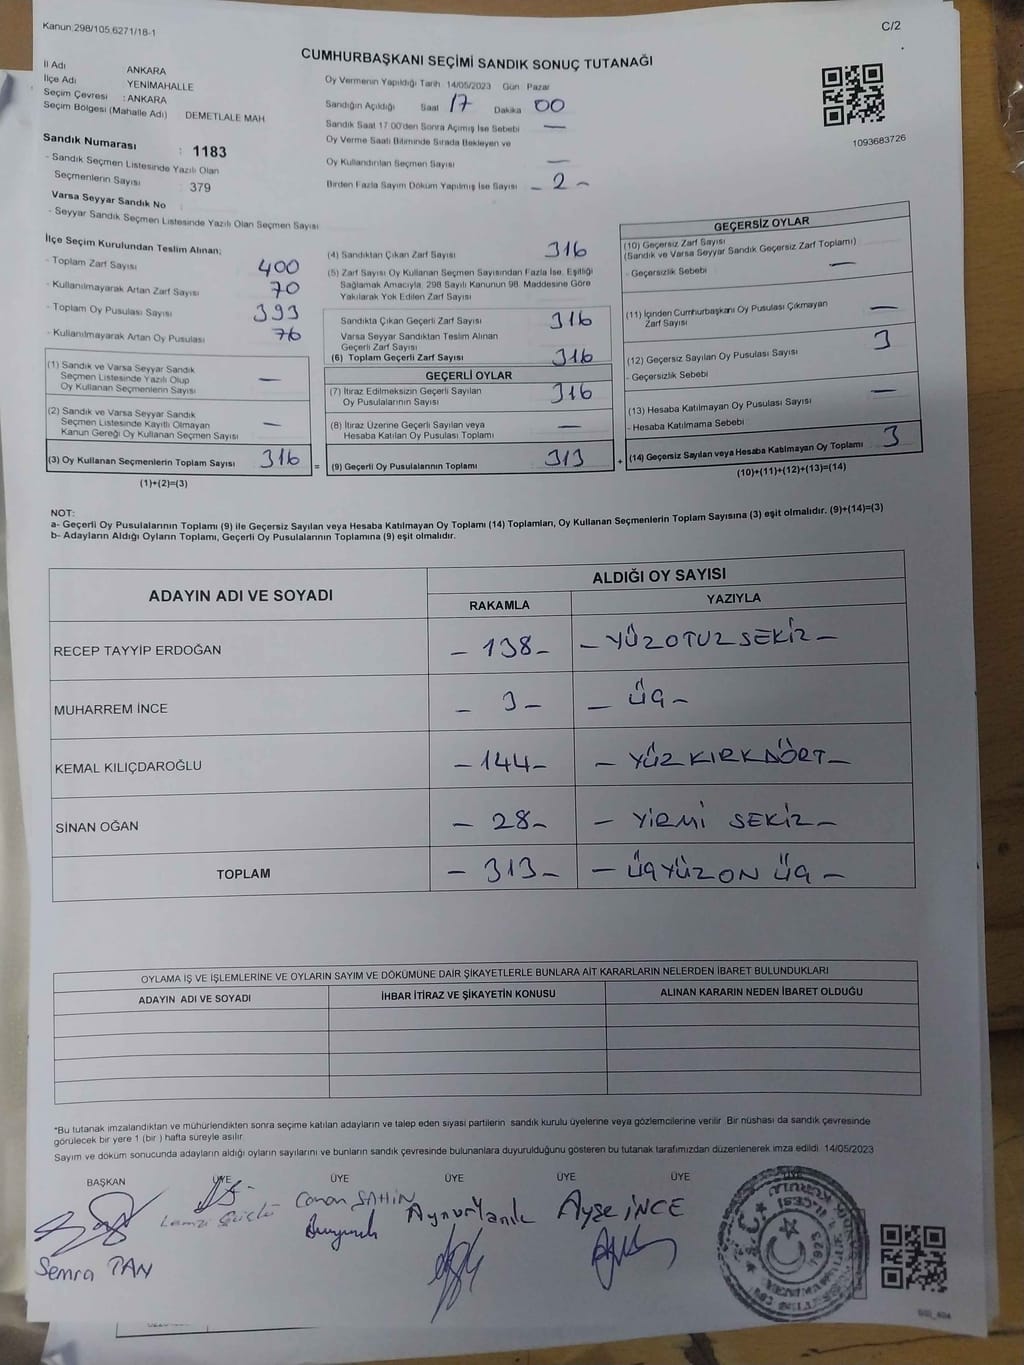 Kanun:298/105.6271/18-1
C/2
CUMHURBAŞKANI SEÇİMİ SANDIK SONUÇ TUTANAĞI
İl Adı ANKARA
İlçe Adı YENİMAHALLE
Seçim Çevresi : ANKARA
Seçim Bölgesi (Mahalle Adı) DEMETLALE MAH
Oy Vermenin Yapıldığı Tarih 14/05/2023 Gün Pazar
Sandığın Açıldığı Saat 17 Dakika 00
Sandık Saat 17:00'den Sonra Açımış İse Sebebi —
Oy Verme Saati Bitiminde Sırada Bekleyen ve
Oy Kullandırılan Seçmen Sayısı —
Birden Fazla Sayım Döküm Yapılmış İse Sayısı - 2 -
1093683726
Sandık Numarası : 1183
- Sandık Seçmen Listesinde Yazılı Olan
Seçmenlerin Sayısı 379
Varsa Seyyar Sandık No
- Seyyar Sandık Seçmen Listesinde Yazılı Olan Seçmen Sayısı
İlçe Seçim Kurulundan Teslim Alınan;
- Toplam Zarf Sayısı 400
- Kullanılmayarak Artan Zarf Sayısı 70
- Toplam Oy Pusulası Sayısı 393
- Kullanılmayarak Artan Oy Pusulası 76
(1) Sandık ve Varsa Seyyar Sandık
Seçmen Listesinde Yazılı Olup
Oy Kullanan Seçmenlerin Sayısı —
(2) Sandık ve Varsa Seyyar Sandık
Seçmen Listesinde Kayıtlı Olmayan
Kanun Gereği Oy Kullanan Seçmen Sayısı —
(3) Oy Kullanan Seçmenlerin Toplam Sayısı 316
(1)+(2)=(3)
=
(4) Sandıktan Çıkan Zarf Sayısı 316
(5) Zarf Sayısı Oy Kullanan Seçmen Sayısından Fazla İse, Eşitliği
Sağlamak Amacıyla, 298 Sayılı Kanunun 98. Maddesine Göre
Yakılarak Yok Edilen Zarf Sayısı
Sandıkta Çıkan Geçerli Zarf Sayısı 316
Varsa Seyyar Sandıktan Teslim Alınan
Geçerli Zarf Sayısı
(6) Toplam Geçerli Zarf Sayısı 316
GEÇERLİ OYLAR
(7) İtiraz Edilmeksizin Geçerli Sayılan
Oy Pusulalarının Sayısı 316
(8) İtiraz Üzerine Geçerli Sayılan veya
Hesaba Katılan Oy Pusulası Toplamı —
(9) Geçerli Oy Pusulalarının Toplamı 313
+
GEÇERSİZ OYLAR
(10) Geçersiz Zarf Sayısı
(Sandık ve Varsa Seyyar Sandık Geçersiz Zarf Toplamı)
- Geçersizlik Sebebi —
(11) İçinden Cumhurbaşkanı Oy Pusulası Çıkmayan
Zarf Sayısı —
(12) Geçersiz Sayılan Oy Pusulası Sayısı 3
- Geçersizlik Sebebi
(13) Hesaba Katılmayan Oy Pusulası Sayısı —
- Hesaba Katılmama Sebebi
(14) Geçersiz Sayılan veya Hesaba Katılmayan Oy Toplamı 3
(10)+(11)+(12)+(13)=(14)
NOT:
a- Geçerli Oy Pusulalarının Toplamı (9) ile Geçersiz Sayılan veya Hesaba Katılmayan Oy Toplamı (14) Toplamları, Oy Kullanan Seçmenlerin Toplam Sayısına (3) eşit olmalıdır. (9)+(14)=(3)
b- Adayların Aldığı Oyların Toplamı, Geçerli Oy Pusulalarının Toplamına (9) eşit olmalıdır.
ADAYIN ADI VE SOYADI ALDIĞI OY SAYISI
RAKAMLA YAZIYLA
RECEP TAYYİP ERDOĞAN - 138 - - YÜZOTUZSEKİZ -
MUHARREM İNCE - 3 - - ÜÇ -
KEMAL KILIÇDAROĞLU - 144 - - YÜZKIRKDÖRT -
SİNAN OĞAN - 28 - - YİRMİ SEKİZ -
TOPLAM - 313 - - ÜÇYÜZON ÜÇ -
OYLAMA İŞ VE İŞLEMLERİNE VE OYLARIN SAYIM VE DÖKÜMÜNE DAİR ŞİKAYETLERLE BUNLARA AİT KARARLARIN NELERDEN İBARET BULUNDUKLARI
ADAYIN ADI VE SOYADI İHBAR İTİRAZ VE ŞİKAYETİN KONUSU ALINAN KARARIN NEDEN İBARET OLDUĞU
*Bu tutanak imzalandıktan ve mühürlendikten sonra seçime katılan adayların ve talep eden siyasi partilerin sandık kurulu üyelerine veya gözlemcilerine verilir. Bir nüshası da sandık çevresinde
görülecek bir yere 1 (bir) hafta süreyle asılır.
Sayım ve döküm sonucunda adayların aldığı oyların sayılarını ve bunların sandık çevresinde bulunanlara duyurulduğunu gösteren bu tutanak tarafımızdan düzenlenerek imza edildi. 14/05/2023
BAŞKAN ÜYE ÜYE ÜYE ÜYE ÜYE ÜYE
Canan ŞAHİN Aynur Yanık Ayşe İNCE
Semra TAN